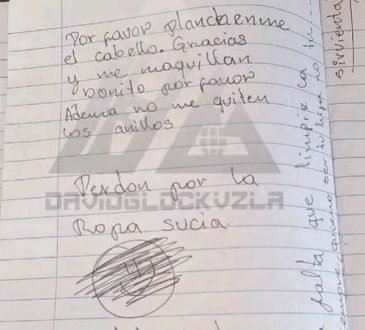 Por favor planchenme
el cabello. Gracias
y me maquillan
bonito por favor
Ademas no me quiten
los anillos
DAVIDGLOCKVZLA
Perdon por la
Ropa sucia.
falta que limpie la tu...
siempre
sirvienta